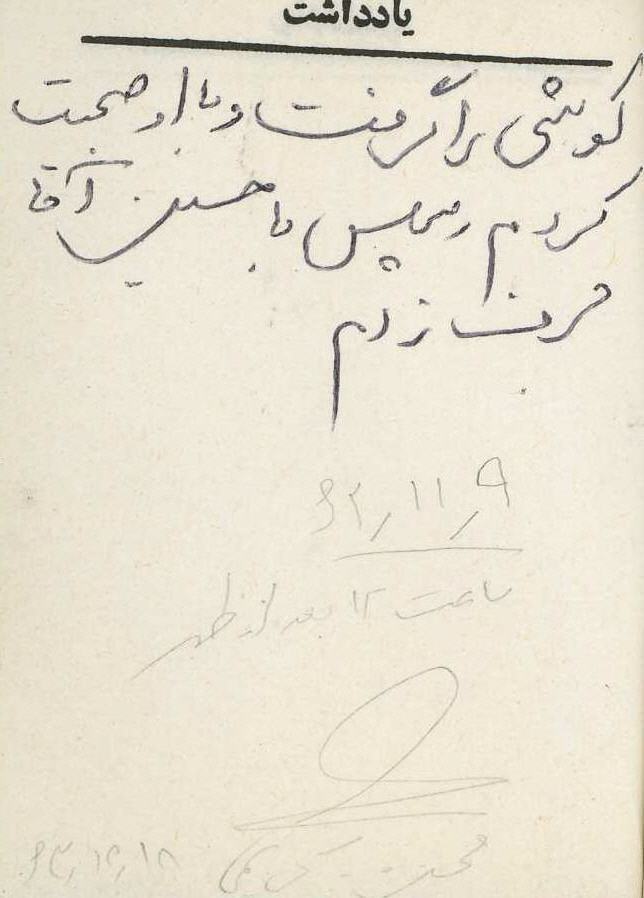 یادداشت
گوشی را گرفت و با او صحبت
کردم و سپس با حسین آقا
حرف زدم
۶۲/۱۱/۹
ساعت ۱۲ بعد از ظهر